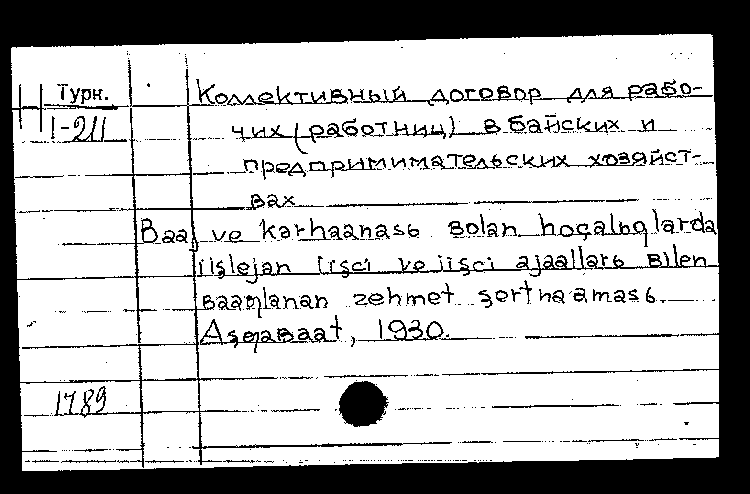 Турн.
1-211
Коллективный договор для рабо-
чих (работниц) в байских и
предпримимательских хозяйст-
вах
Baaj ve karhaanasь bolan hoçalьqlarda
iişlejan iişci ve iişci ajaallarь bilen
baaƣlanan zehmet şertnaamasь.
Aşqabaat, 1930.
1789